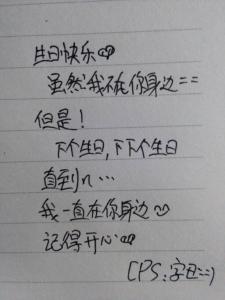 生日快乐
虽然我不在你身边==
但是!
下个生日,下下个生日
直到n…
我一直在你身边
记得开心
(PS:字丑==)